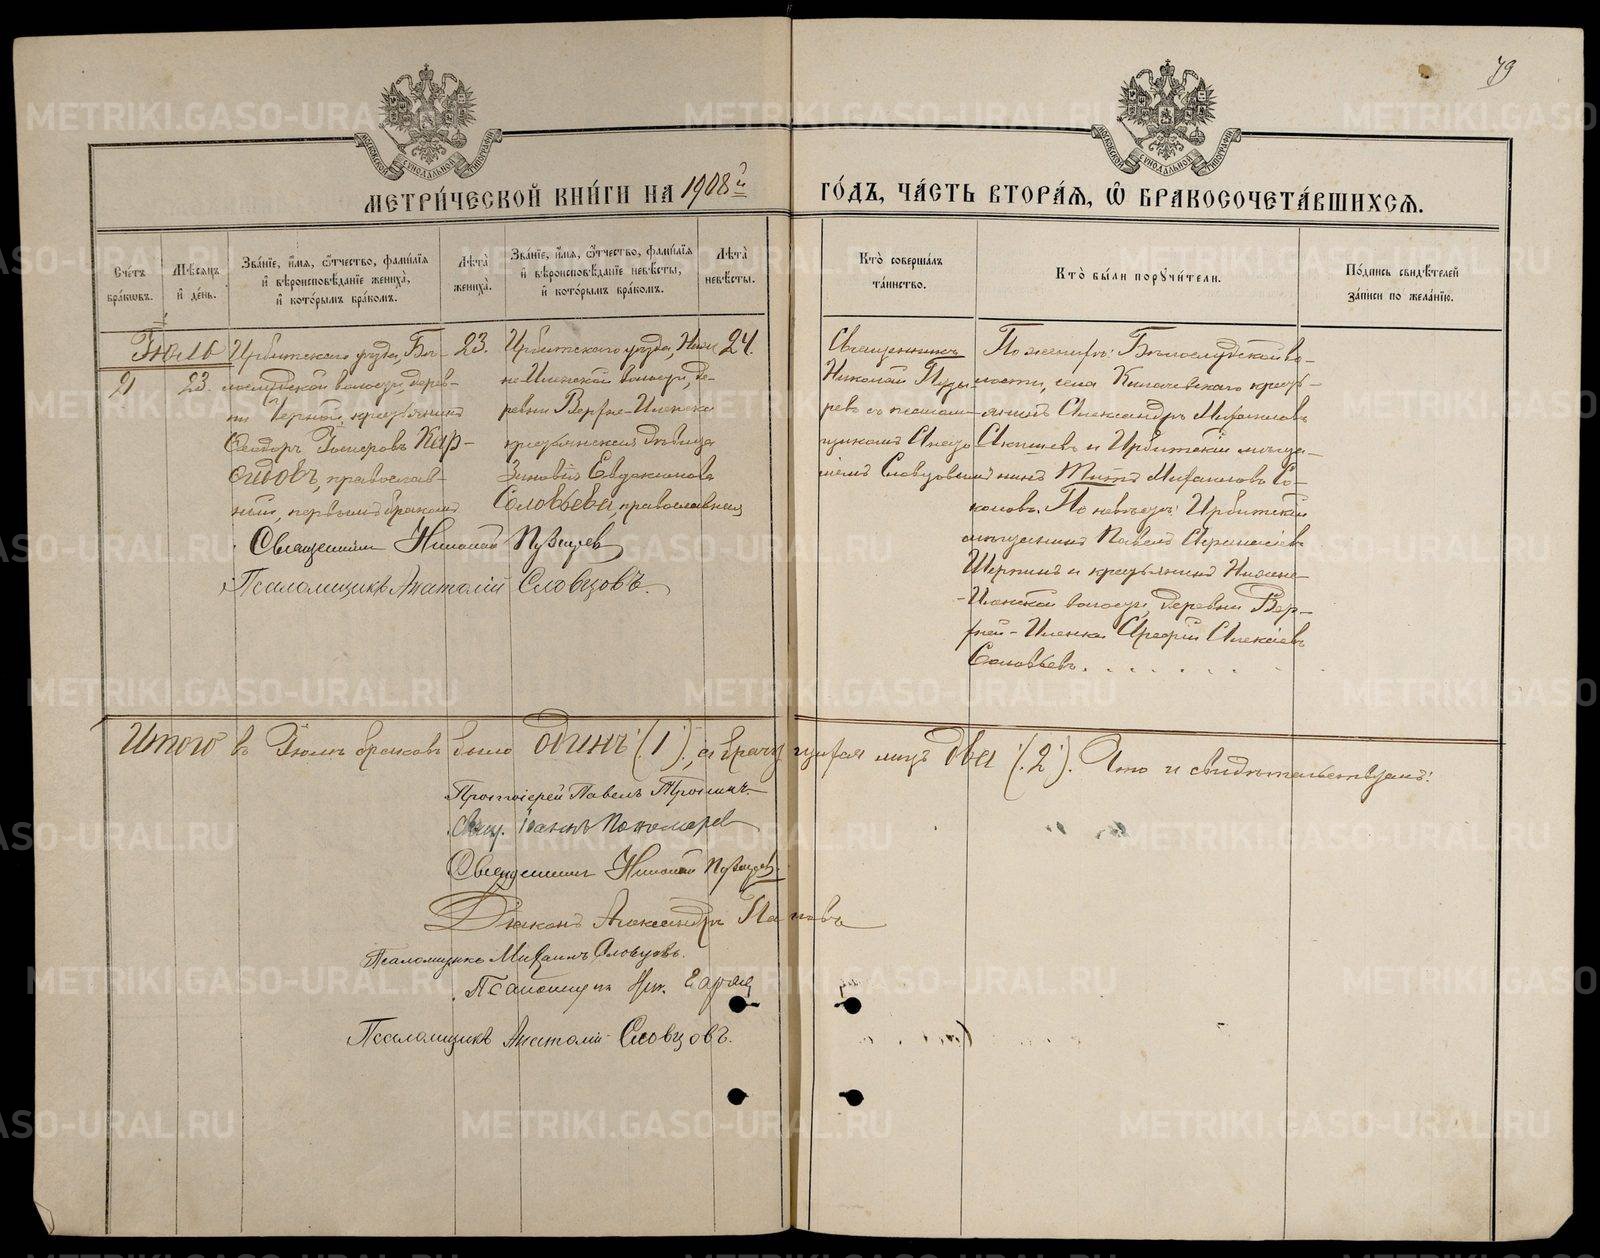 79
МОСКОВСКОЙ СѴНОДАЛЬНОЙ ТИПОГРАФІИ
МОСКОВСКОЙ СѴНОДАЛЬНОЙ ТИПОГРАФІИ
МЕТРИ́ЧЕСКОЙ КНИ́ГИ НА 1908й ГО́ДЪ, ЧА́СТЬ ВТОРА́Я, Ѽ БРАКОСОЧЕТА́ВШИХСЯ.
Сче́тъ бра́кѡвъ.
Мѣ́сяцъ и҆ де́нь.
Зва́нїе, и҆́мя, ѻ҆́тчество, фами́лїя и҆ вѣроисповѣ́данїе жениха̀, и҆ кото́рымъ бра́комъ.
Лѣта̀ жениха̀.
Зва́нїе, и҆́мя, ѻ҆́тчество, фами́лїя и҆ вѣроисповѣ́данїе невѣ́сты, и҆ кото́рымъ бра́комъ.
Лѣта̀ невѣ́сты.
Кто̀ соверша́лъ та́инство.
Кто̀ бы́ли порꙋчи́тели.
По́дпись свидѣ́телей за́писи по жела́нїю.
Іюль
21
23.
Ирбитскаго уѣзда, Бѣ-
лослудской волости, дерев-
ни Черной, крестьянинъ
Ѳеодоръ Кар-
повъ, православ-
ный, первымъ бракомъ
23.
Ирбитскаго уѣзда, Ниж
не-Иленской волости, де-
ревни Верхне-Иленской
крестьянская дѣвица
Зиновія Евдокимова
Соловьева, православная
24.
Священникъ
Николай Пузы
ревъ съ псалом-
щикомъ Анато
ліемъ Словцовымъ
По женихѣ: Бѣлослудской во-
лости, села Килачевскаго кресть-
янинъ Александръ Михаиловъ
и Ирбитскій мѣща-
нинъ Титъ Михаиловъ Со-
коловъ. По невѣстѣ: Ирбитскій
мѣщанинъ Павелъ Аѳанасіевъ
и крестьянинъ Нижне-
-Иленской волости, деревни Вер-
хней-Иленки Алексіевъ
Соловьевъ.
Священникъ Николай Пузыревъ
Псаломщикъ Анатолій Словцовъ.
Итого въ Іюлѣ браковъ было одинъ (1), а брачущихся лицъ два (2). Что и свидѣтельствуемъ:
Протоіерей Павелъ
Свящ. Іоаннъ Пономаревъ
Священникъ Николай Пузыревъ
Діаконъ Александръ Поповъ
Псаломщикъ Михаилъ Словцовъ.
Псаломщикъ
Псаломщикъ Анатолій Словцовъ.
METRIKI.GASO-URAL.RU